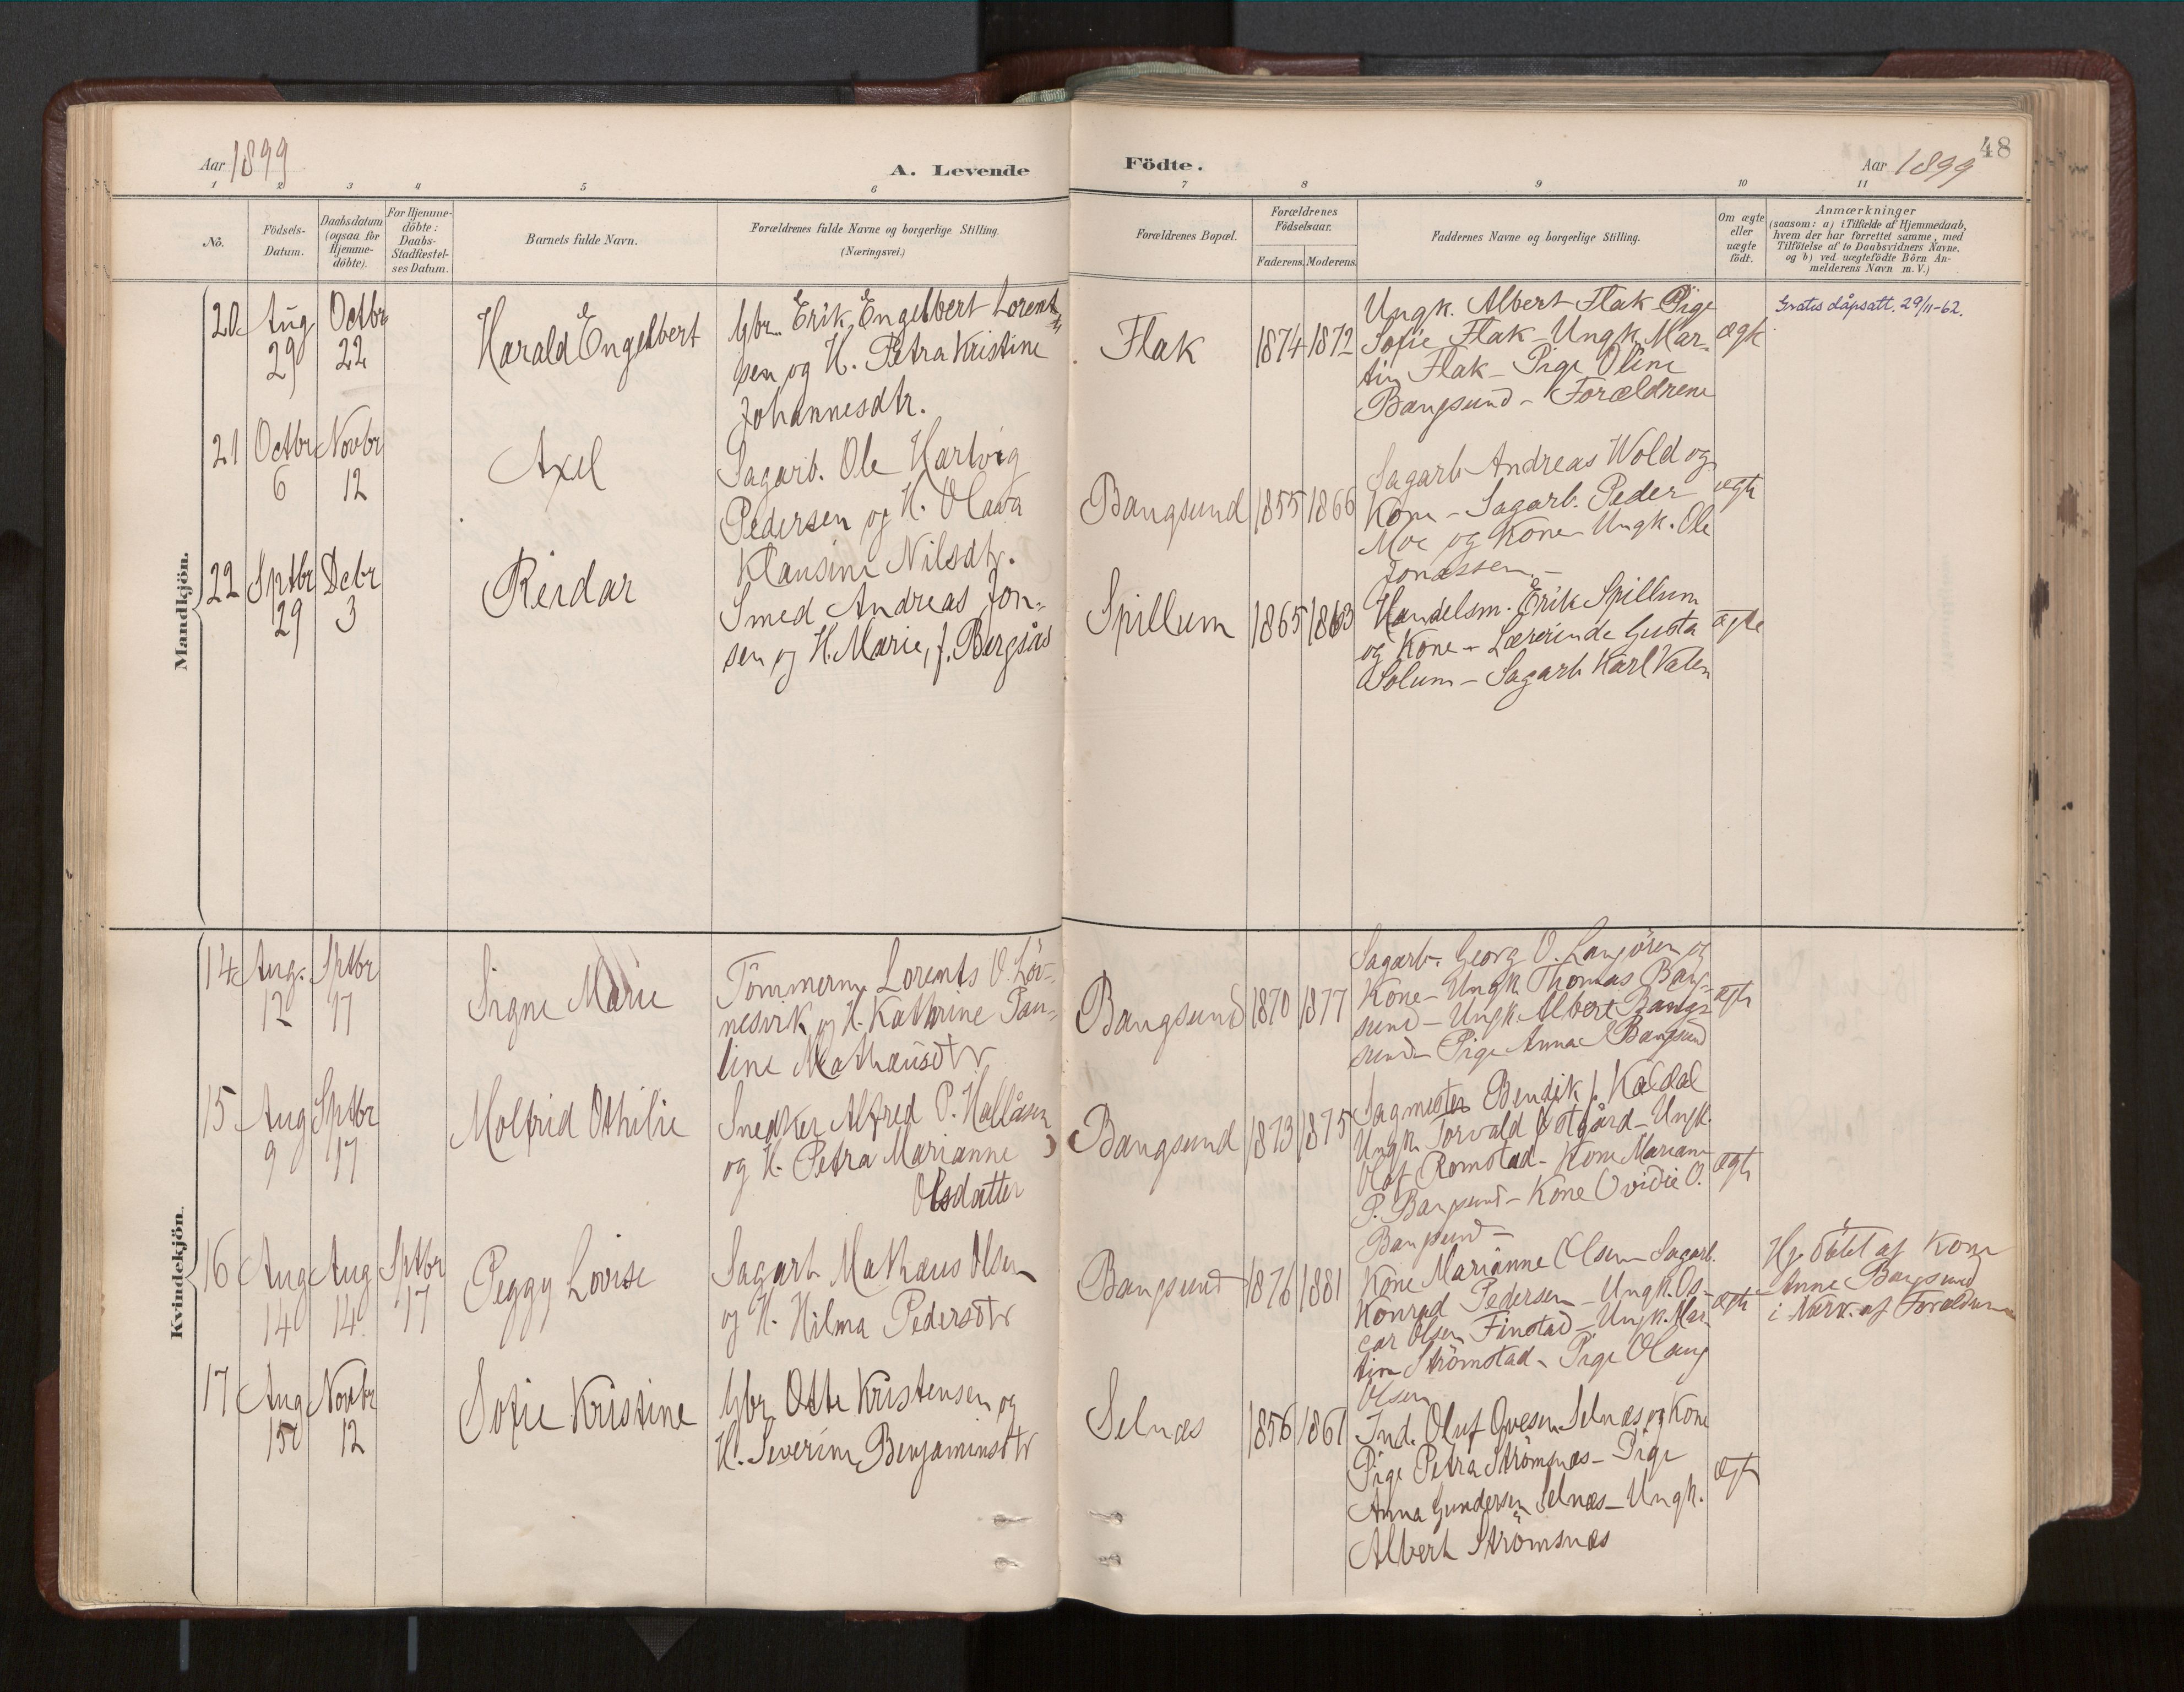 48
Aar 1899
A. Levende
Födte.
Aar 1899
1 2 3 4 5 6 7 8 9 10 11
No.
Födsels-
Datum.
Daabsdatum
(ogsaa for
Hjemme-
döbte).
For Hjemme-
döbte:
Daabs-
Stadfæstel-
ses Datum.
Barnets fulde Navn.
Forældrenes fulde Navne og borgerlige Stilling.
(Næringsvei.)
Forældrenes Bopæl.
Forældrenes
Födselsaar.
Faderens. Moderens.
Faddernes Navne og borgerlige Stilling.
Om ægte
eller
uægte
födt.
Anmærkninger
(saasom: a) i Tilfælde af Hjemmedaab,
hvem der har forrettet samme, med
Tilföielse af to Daabsvidners Navne.
og b) ved uægtefödte Börn An-
melderens Navn m. V.)
Mandkjön.
20
Aug
29
Octbr
22
Harald Engelbert
Gbr. Erik Engelbert Lorent-
sen og H. Petra Kristine
Johannesdtr.
Flak
1874
1872
Ungk. Albert Flak Pige
Sofie Flak - Ungk. Mar-
tin Flak - Pige Oline
Bangsund - Forældrene
ægte
Gratis dåpsatt. 29/11-62.
21
Octbr
6
Novbr
12
Axel
Sagarb. Ole Hartvig
Pedersen og H. Olava
Klausine Nilsdtr.
Bangsund
1855
1866
Sagarb Andreas Wold og
Kone - Sagarb. Peder
Moe og Kone - Ungk. Ole
Jonassen -
ægte
22
Sptbr
29
Debr
3
Reidar
Smed Andreas Jon-
sen og H. Marie, f. Bergsås
Spillum
1865
1863
Handelsm. Erik Spillum
og Kone - Lærerinde Gusta
Solum - Sagarb Karl Vaten
ægte
Kvindekjön.
14
Aug.
12
Sptbr
17
Signe Marie
Tömmerm. Lorents O. Löv-
nesvik og H. Kathrine Pau-
line Mathausdtr
Bangsund
1870
1877
Sagarb. Georg O. Langören og
Kone - Ungk Thomas Bang-
sund - Ungk Albert Bangs-
sund - Pige Anna Bangsund
ægte
15
Aug
9
Sptbr
17
Molfrid Othilie
Snedker Alfred P. Hallåsen
og H. Petra Marianne
Olsdatter
Bangsund
1873
1875
Sagmester Bendik J. Kaldal
Ungk Torvald Östgård - Ungk.
Olaf Romstad - Kone Mariane
P. Bangsund - Kone Ovidie O.
Bangsund -
ægte
16
Aug
14
Aug
14
Sptbr
17
Peggy Lovise
Sagarb Mathæus Olsen
og H. Hilma Pedersdtr
Bangsund
1876
1881
Kone Marianne Olsen - Sagarb.
Konrad Pedersen - Ungk. Os-
car Olsen Finstad - Ungk. Mar-
tin Strömstad - Pige Olaug
Olsen
ægte
Hj. döbt af Kone
Anne Bangsund
i Nærv. af Forældrene
17
Aug
15
Novbr
12
Sofie Kristine
Gbr Otte Kristensen og
H. Severine Benjaminsdtr
Selnæs
1856
1861
Ind. Oluf Ovesen Selnæs og Kone
Pige Petra Strömsnæs - Pige
Anna Gundersen Selnæs - Ungk.
Albert Strömsnæs
ægte